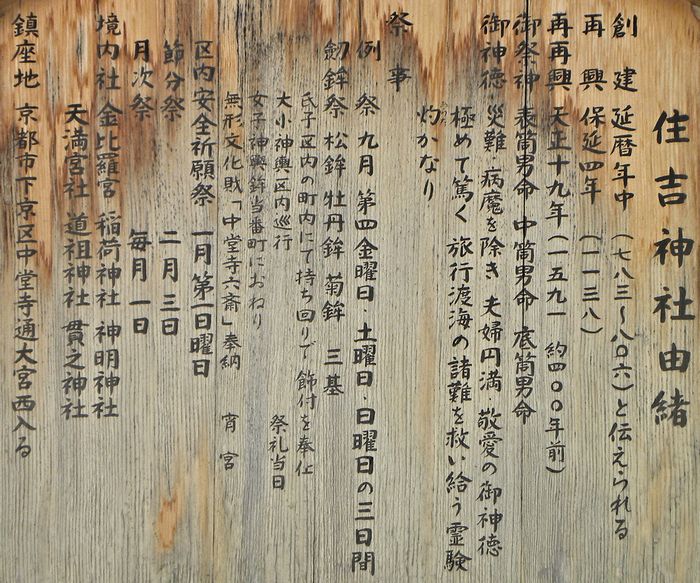 住吉神社由緒
創建 延暦年中(七八三~八〇六)と伝えられる
再興 保延四年(一一三八)
再再興 天正十九年(一五九一 約四〇〇年前)
御祭神 表筒男命 中筒男命 底筒男命
御神徳 災難 病魔を除き 夫婦円満 敬愛の御神徳
極めて篤く 旅行渡海の諸難を救い給う霊験
灼かなり
祭事
例祭 九月 第四金曜日・土曜日・日曜日の三日間
剱鉾祭 松鉾 牡丹鉾 菊鉾 三基
氏子区内の町内にて持ち回りで飾付を奉仕
大小神輿区内巡行 祭礼当日
女子神輿鉾当番町におねり
無形文化財「中堂寺六斎」奉納 宵宮
区内安全祈願祭 一月第一日曜日
節分祭 二月三日
月次祭 毎月一日
境内社 金比羅宮 稲荷神社 神明神社
天満宮社 道祖神社 貫之神社
鎮座地 京都市下京区中堂寺通大宮西入る